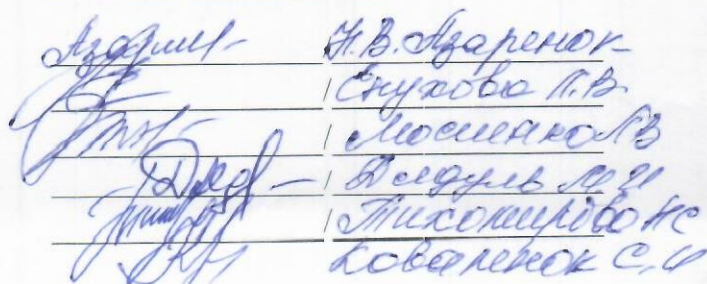 Н.В. Азаренок
/ Снухова Л.В.
/ Мосиенко Л В
/ Дидуль М И
/ Тихомирова Н С
/ Коваленок С. И